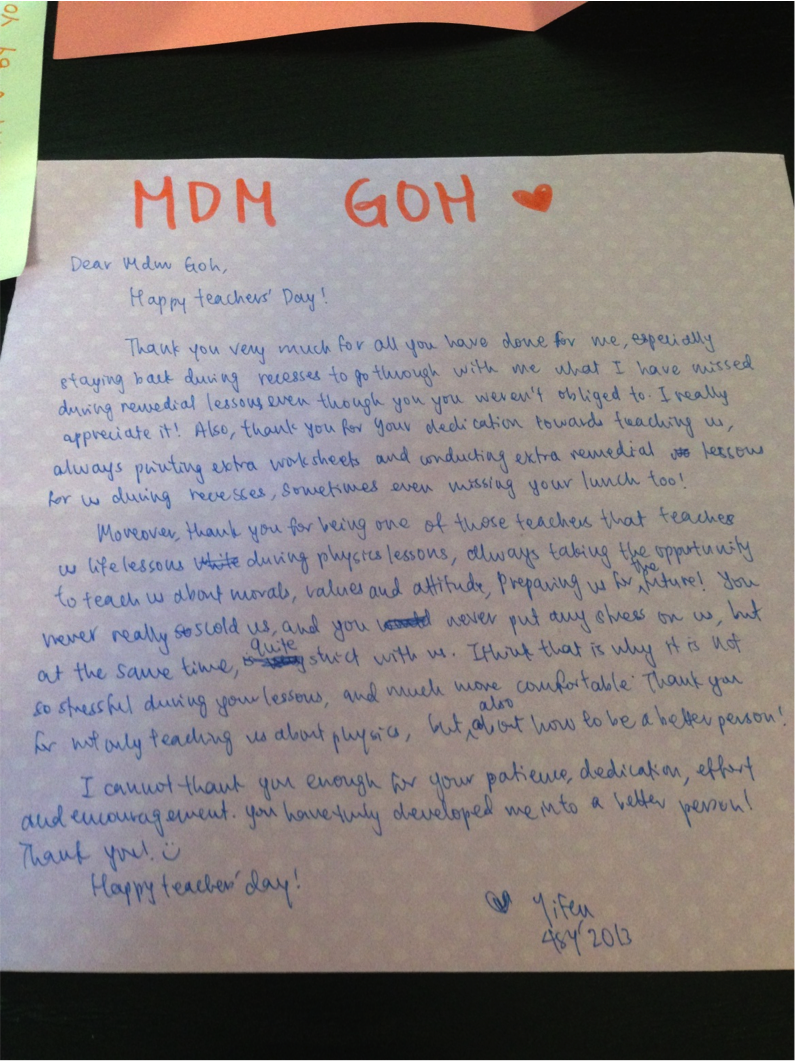 MDM GOH ♥
Dear Mdm Goh,
Happy teachers' Day!
Thank you very much for all you have done for me, especially
staying back during recesses to go through with me what I have missed
during remedial lessons even though you you weren't obliged to. I really
appreciate it! Also, thank you for your dedication towards teaching us,
always printing extra worksheets and conducting extra remedial lessons
for us during recesses, sometimes even missing your lunch too!
Moreover, thank you for being one of those teachers that teaches
us life lessons while during physics lessons, always taking the opportunity
to teach us about morals, values and attitude, preparing us for the future! You
never really scold us, and you never put any stress on us, but
at the same time, quite strict with us. I think that is why it is not
so stressful during your lessons, and much more comfortable. Thank you
for not only teaching us about physics, but also about how to be a better person!
I cannot thank you enough for your patience, dedication, effort
and encouragement. You have truly developed me into a better person!
Thank you! :)
Happy teachers' day!
♥ Yifen
4SY'2013